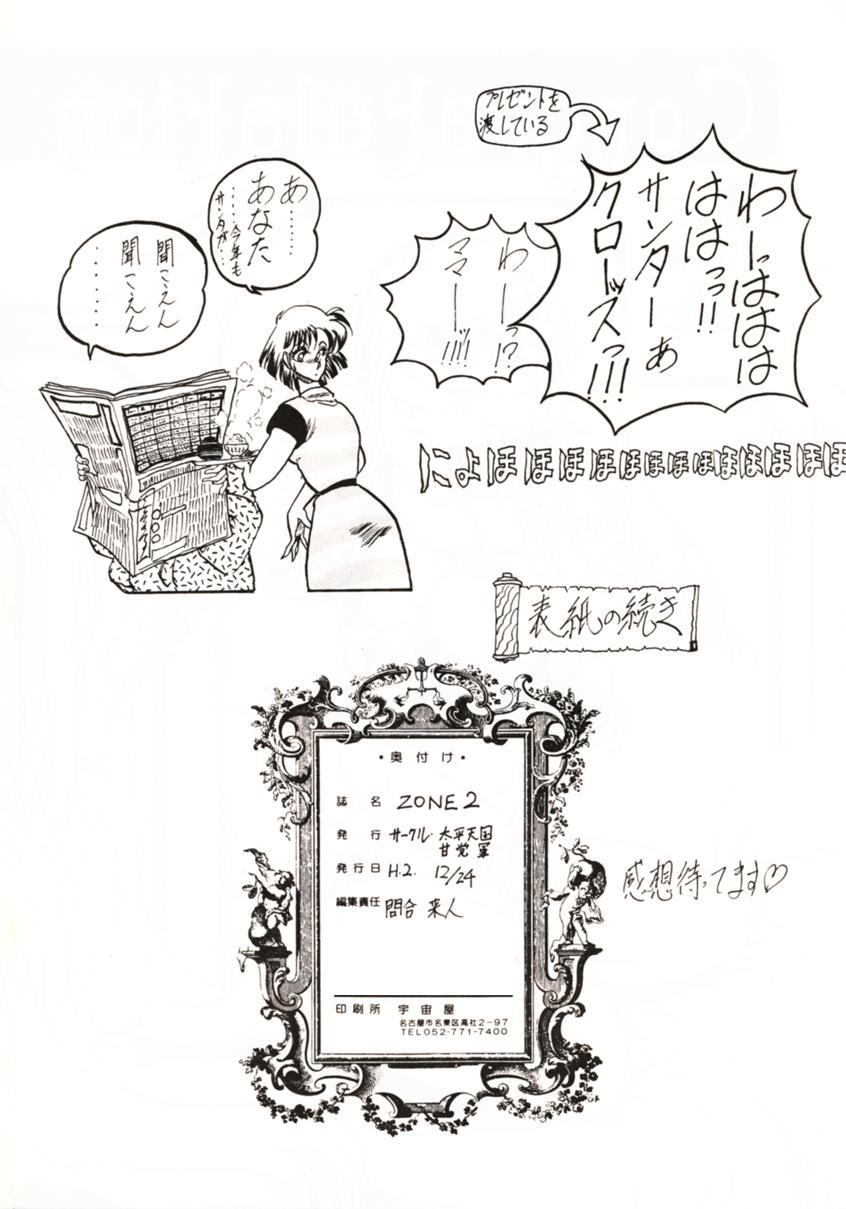 プレゼントを
渡している
わーっははは
ははっ!!
サンターぁ
クローッスっ!!!
わーっ!?
ママーッ!!!!
あ……
あなた
……今年も
サンタが…
聞こえん
聞こえん
……
にょほほほほほほほほほほほほほ
表紙の続き
・奥付け・
誌名 ZONE2
発行 サークル・太平天国
甘党軍
発行日 H.2. 12/24
編集責任 問合 来人
印刷所 宇宙屋
名古屋市名東区高社2-97
TEL052-771-7400
感想待ってます♡